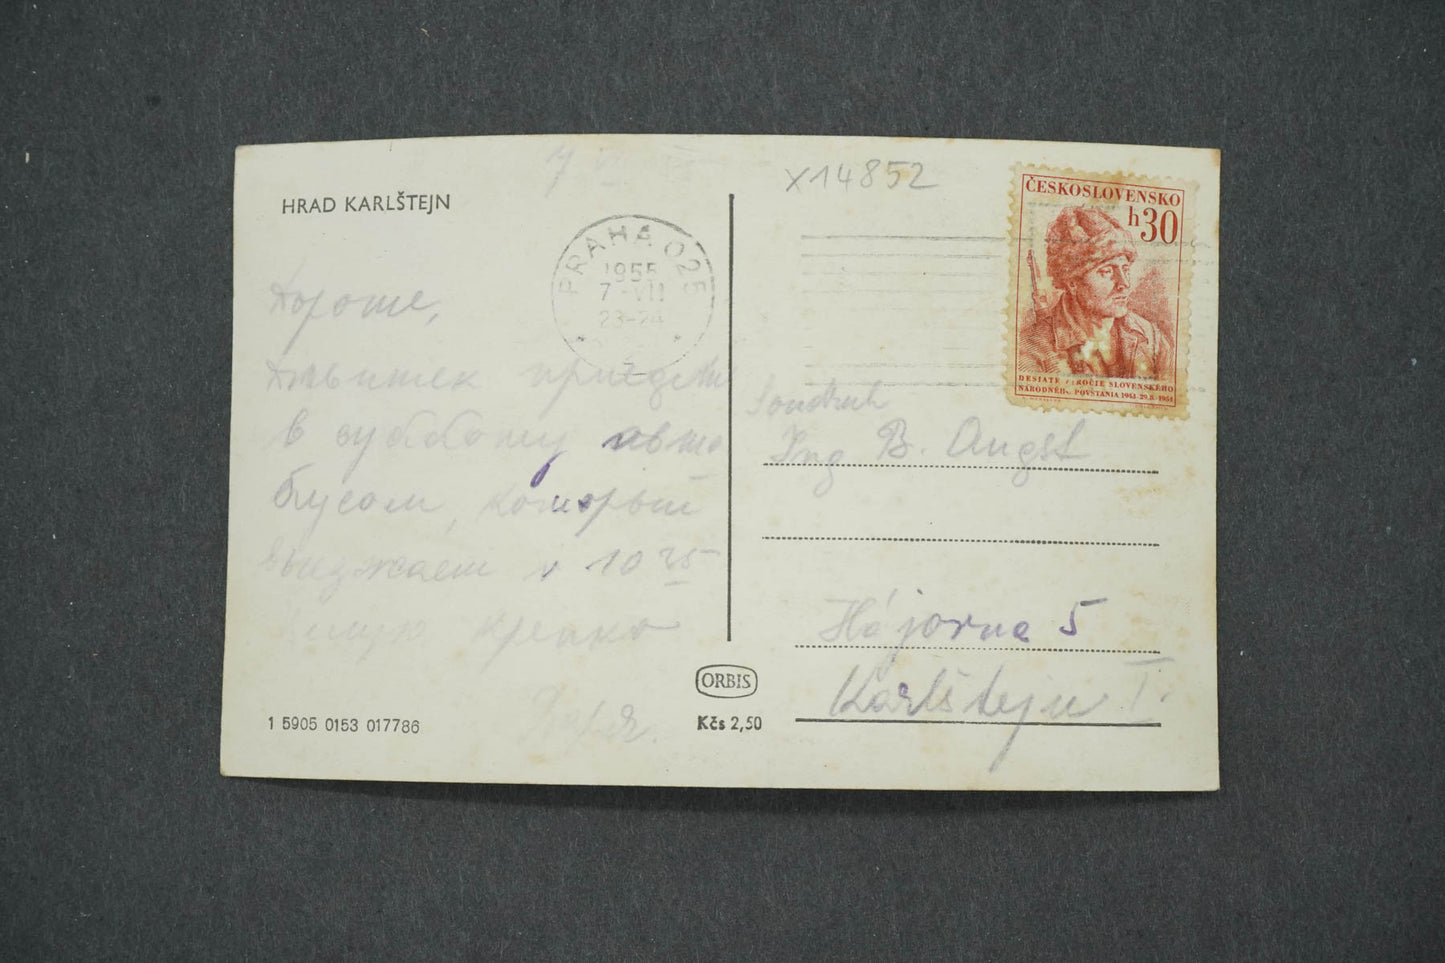 HRAD KARLŠTEJN
PRAHA 025
1955
7 -VII
23-24
2
Хороше,
приедет
в субботу авто
бусом, который
выезжает в 10 25
крепко
1 5905 0153 017786
ORBIS
Kčs 2,50
X14852
ČESKOSLOVENSKO
h30
DESIATE VÝROČIE SLOVENSKÉHO
NÁRODNÉHO POVSTANIA 1944 - 29.8 - 1954
Soudruh
Ing B. Augst
Hájovna 5
Karlštejn I.